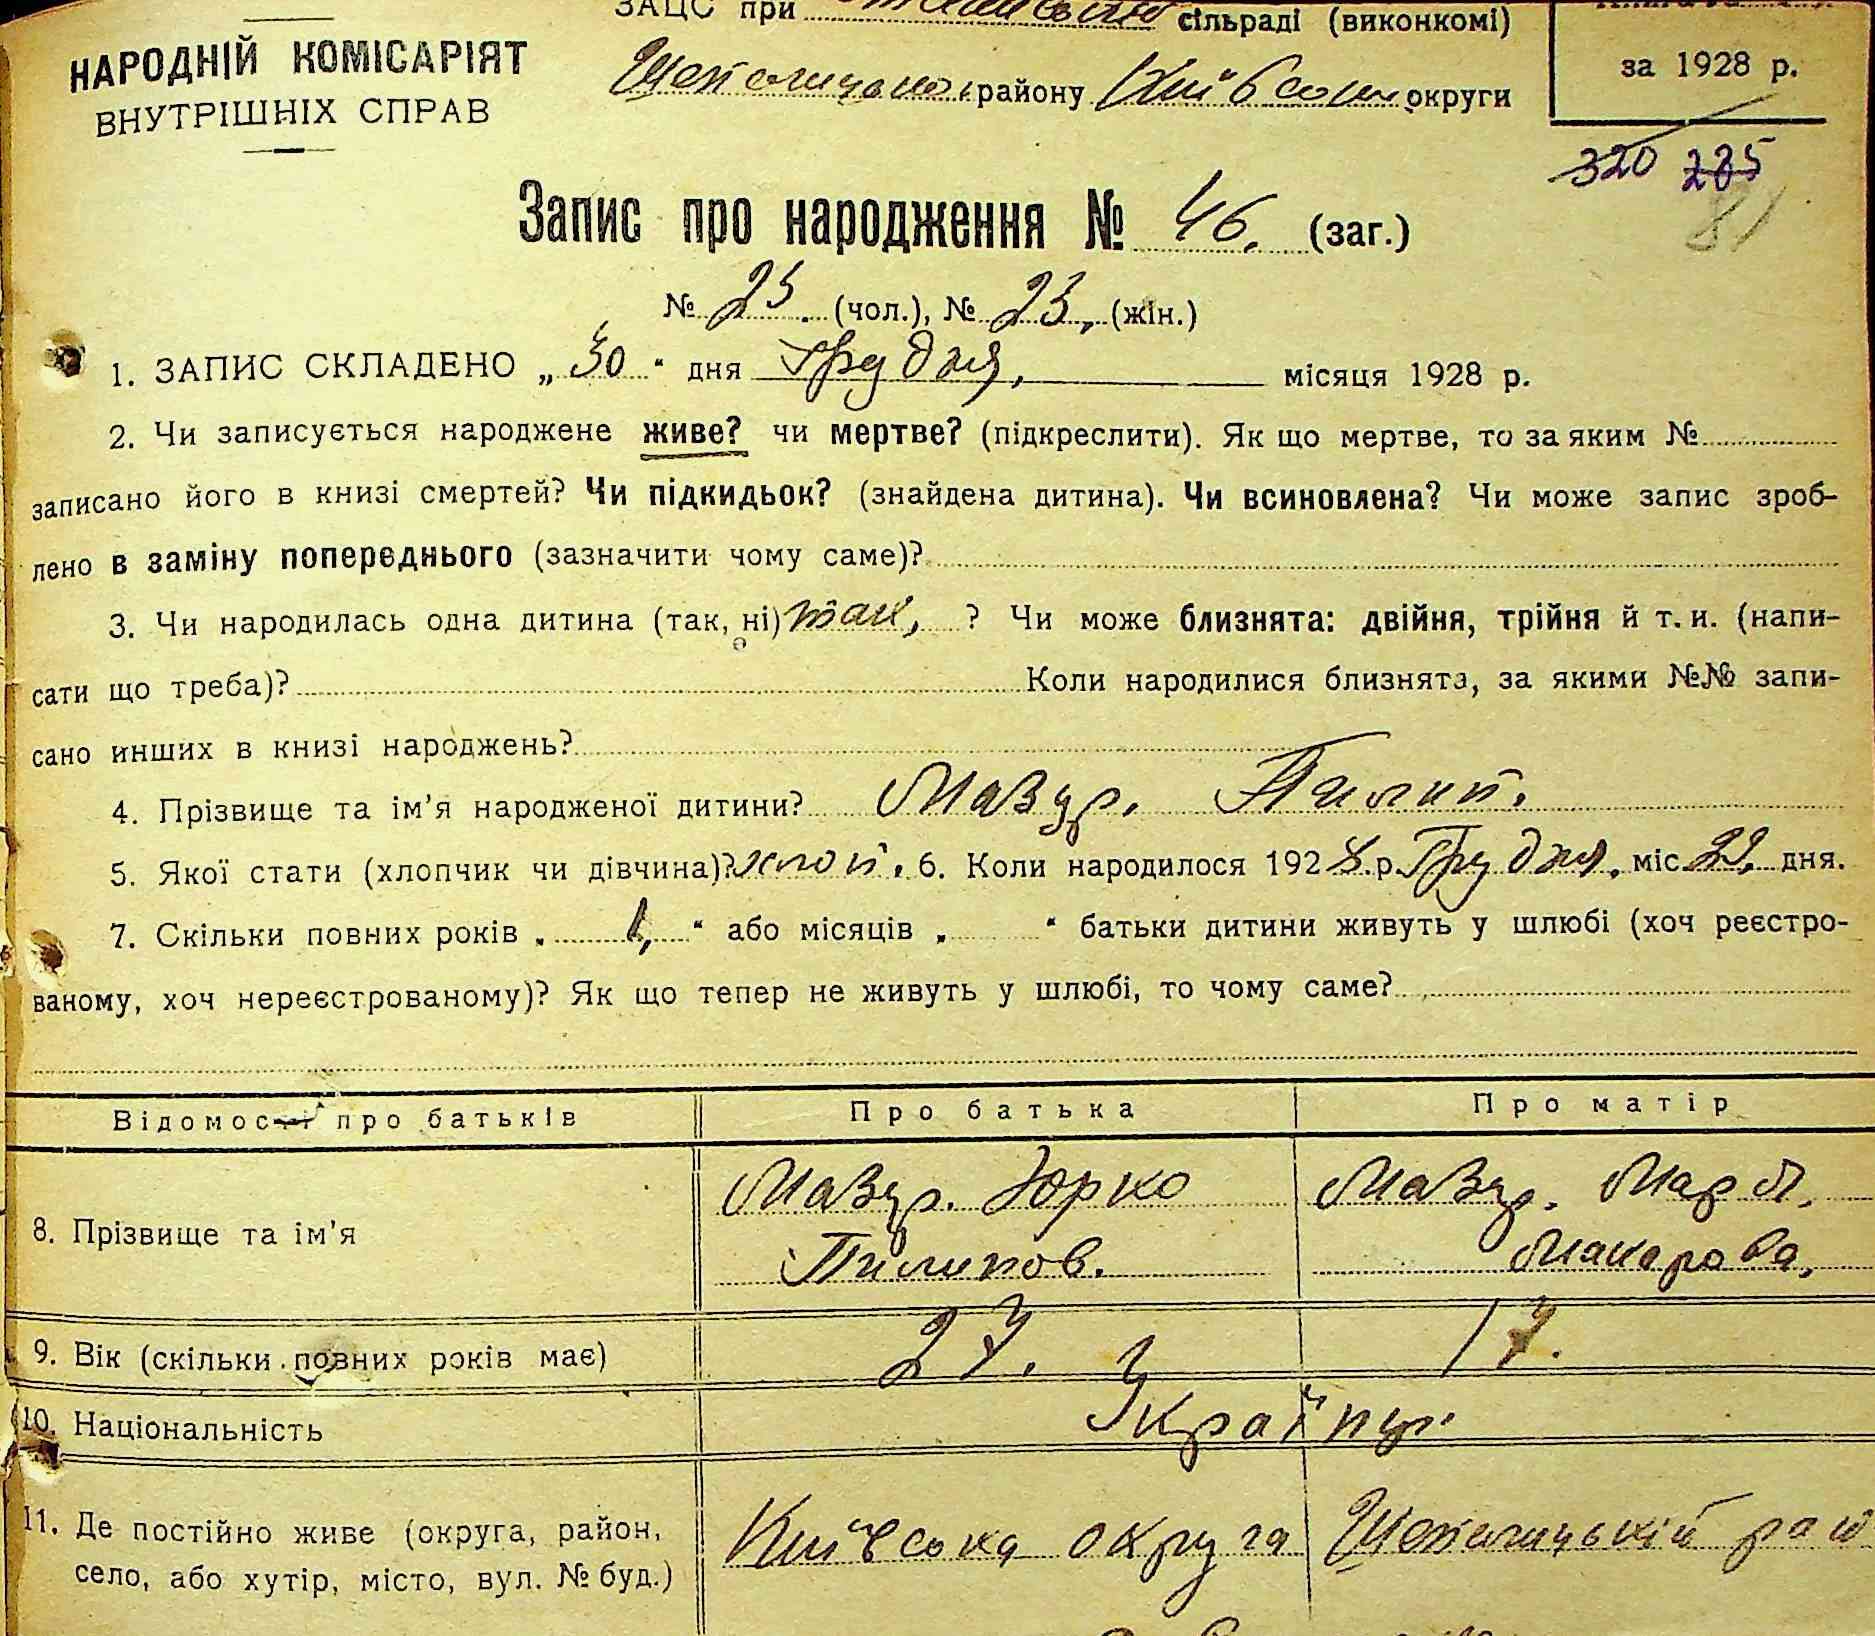 ЗАЦС при сільраді (виконкомі)
НАРОДНІЙ КОМІСАРІЯТ
ВНУТРІШНІХ СПРАВ
району Київської округи
за 1928 р.
320 285
81
Запис про народження № 46. (заг.)
№ 23. (чол.), № 23, (жін.)
1. ЗАПИС СКЛАДЕНО „ 30 " дня Грудня, місяця 1928 р.
2. Чи записується народжене живе? чи мертве? (підкреслити). Як що мертве, то за яким №
записано його в книзі смертей? Чи підкидьок? (знайдена дитина). Чи всиновлена? Чи може запис зроб-
лено в заміну попереднього (зазначити чому саме)?
3. Чи народилась одна дитина (так, ні) так, ? Чи може близнята: двійня, трійня й т. и. (напи-
сати що треба)? Коли народилися близнята, за якими №№ запи-
сано инших в книзі народжень?
4. Прізвище та ім'я народженої дитини? Мазур. Пилип.
5. Якої стати (хлопчик чи дівчина)? хлоп. 6. Коли народилося 1928.р. Грудня. міс 22. дня.
7. Скільки повних років „ 1, " або місяців „ " батьки дитини живуть у шлюбі (хоч реєстро-
ваному, хоч нереєстрованому)? Як що тепер не живуть у шлюбі, то чому саме?
Відомості про батьків Про батька Про матір
8. Прізвище та ім'я Мазур. Юрко Мазур. Марія.
Пилипов. Макарова,
9. Вік (скільки повних років має) 27. 17.
10. Національність Україн.
11. Де постійно живе (округа, район, Київська округа рай
село, або хутір, місто, вул. № буд.)